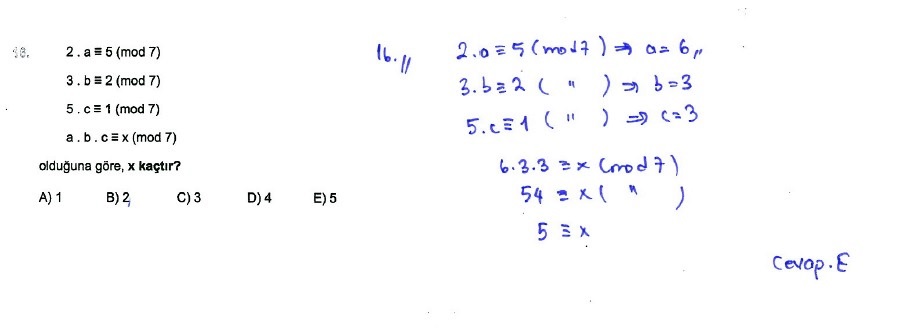 16. 2 . a ≡ 5 (mod 7)
3 . b ≡ 2 (mod 7)
5 . c ≡ 1 (mod 7)
a . b . c ≡ x (mod 7)
olduğuna göre, x kaçtır?
A) 1 B) 2 C) 3 D) 4 E) 5
16.// 2.a ≡ 5 (mod 7) ⇒ a = 6 //
3.b ≡ 2 ( " ) ⇒ b = 3
5.c ≡ 1 ( " ) ⇒ c = 3
6.3.3 ≡ x (mod 7)
54 ≡ x ( " )
5 ≡ x
Cevap. E